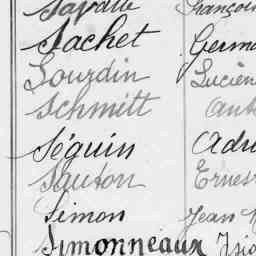 Sachet Germa
Sourdin Lucien
Schmitt Anto
Séguin Adri
Sauton Ernes
Simon Jean
Simonneaux Isid